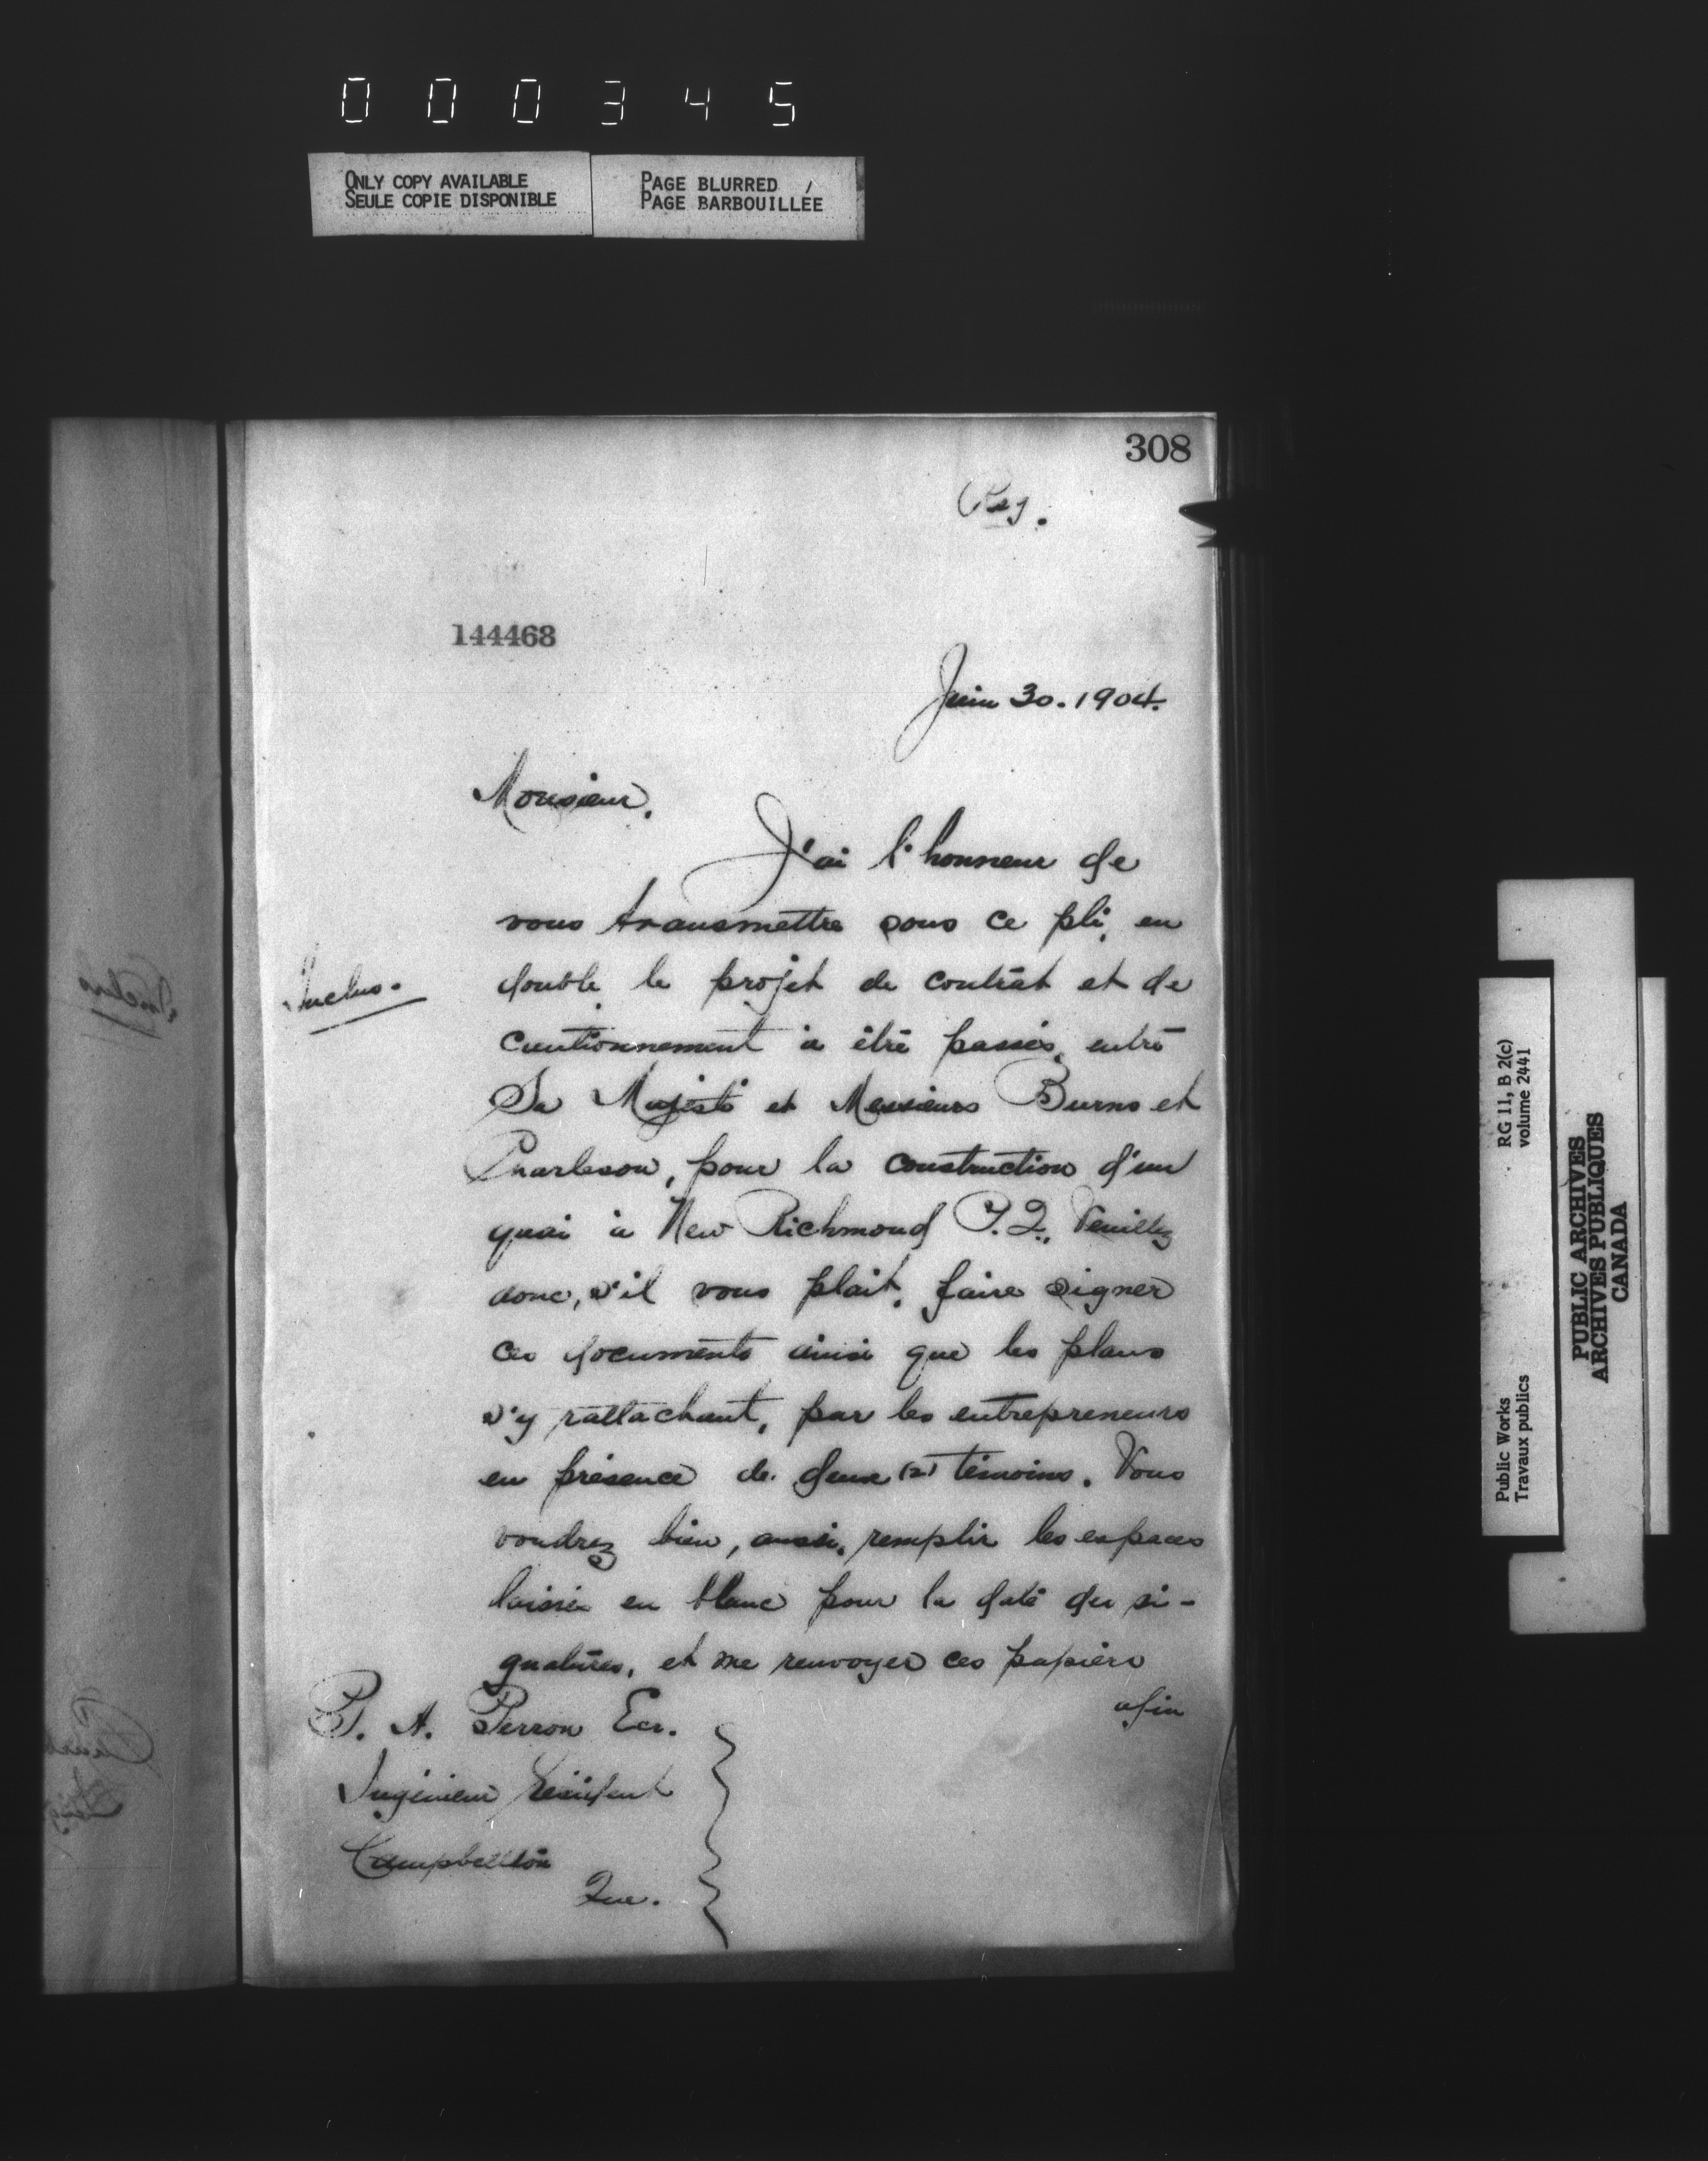 0 0 0 3 4 5
ONLY COPY AVAILABLE
SEULE COPIE DISPONIBLE
PAGE BLURRED
PAGE BARBOUILLÉE
308
Reg.
144468
Juin 30. 1904.
Monsieur,
J'ai l'honneur de
vous transmettre sous ce pli, en
double, le projet de contrat et de
Inclus.
cautionnement à être passés, entre
Sa Majesté et Messieurs Burns et
Charleson, pour la construction d'un
quai à New Richmond P. Q., Veuillez
donc, s'il vous plait, faire signer
ces documents ainsi que les plans
s'y rattachant, par les entrepreneurs
en présence de deux (2) témoins. Vous
voudrez bien, aussi, remplir les espaces
laissés en blanc pour la date des si-
gnatures, et me renvoyer ces papiers
afin
P. A. Perron Ecr.
Ingénieur Résident
Campbellton
Que.
RG 11, B 2(c)
volume 2441
Public Works
Travaux publics
PUBLIC ARCHIVES
ARCHIVES PUBLIQUES
CANADA